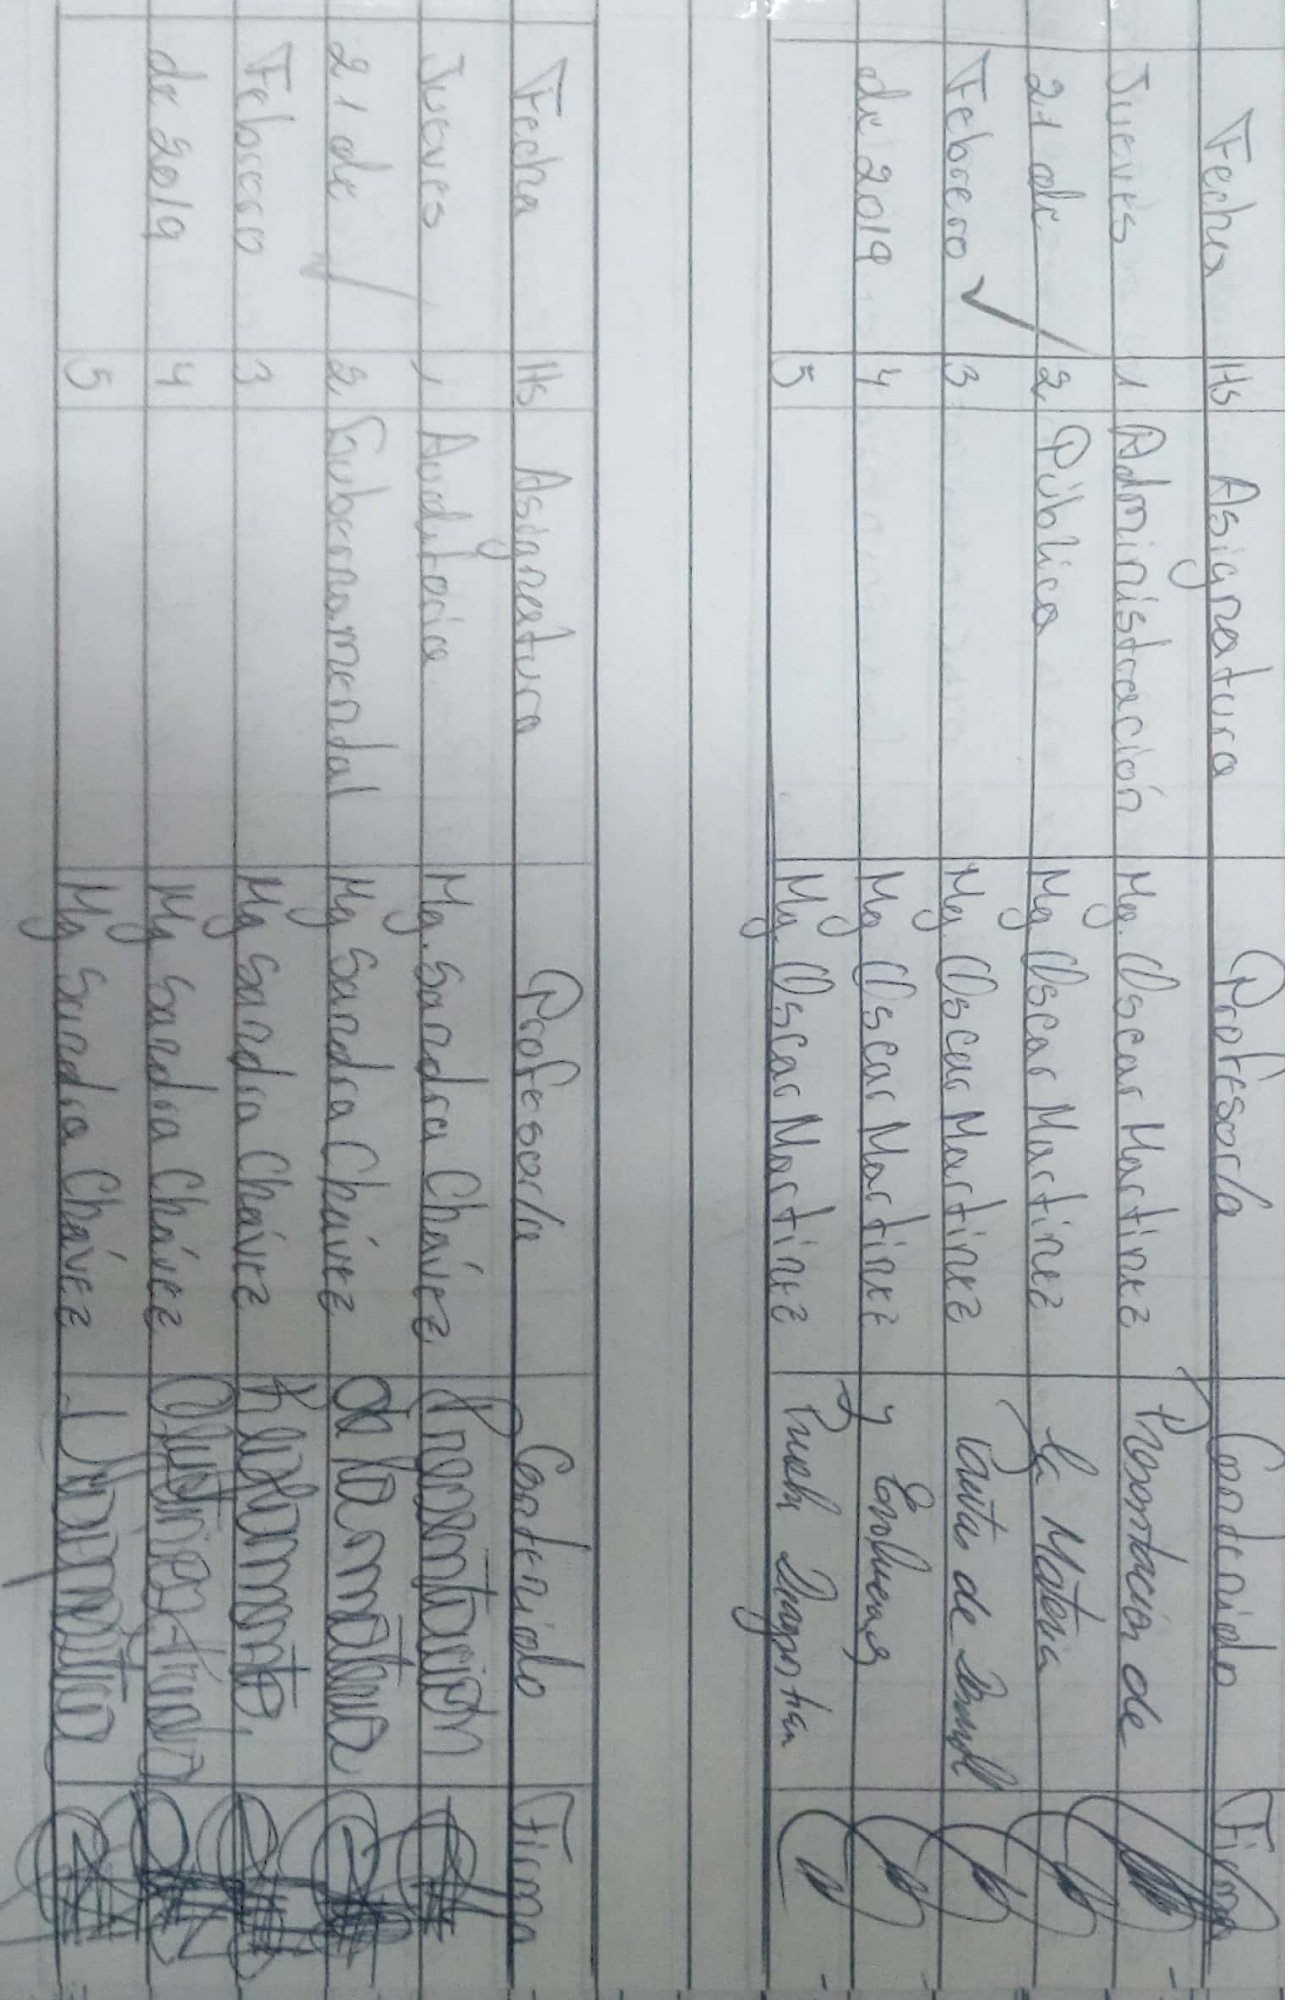 Fecha Hs Asignatura Profesor/a Contenido Firma
Jueves 1 Administración Mg. Oscar Martínez Presentación de
21 de 2 Pública Mg Oscar Martínez la Materia
Febrero 3 Mg Oscar Martínez Pautas de
de 2019 4 Mg Oscar Martínez y
5 Mg Oscar Martínez Prueba Diagnostica
Fecha Hs Asignatura Profesor/a Contenido Firma
Jueves 1 Auditoria Mg. Sandra Chávez Presentación
21 de 2 Gubernamental Mg Sandra Chávez de la materia
Febrero 3 Mg Sandra Chávez
de 2019 4 Mg Sandra Chávez
5 Mg Sandra Chávez